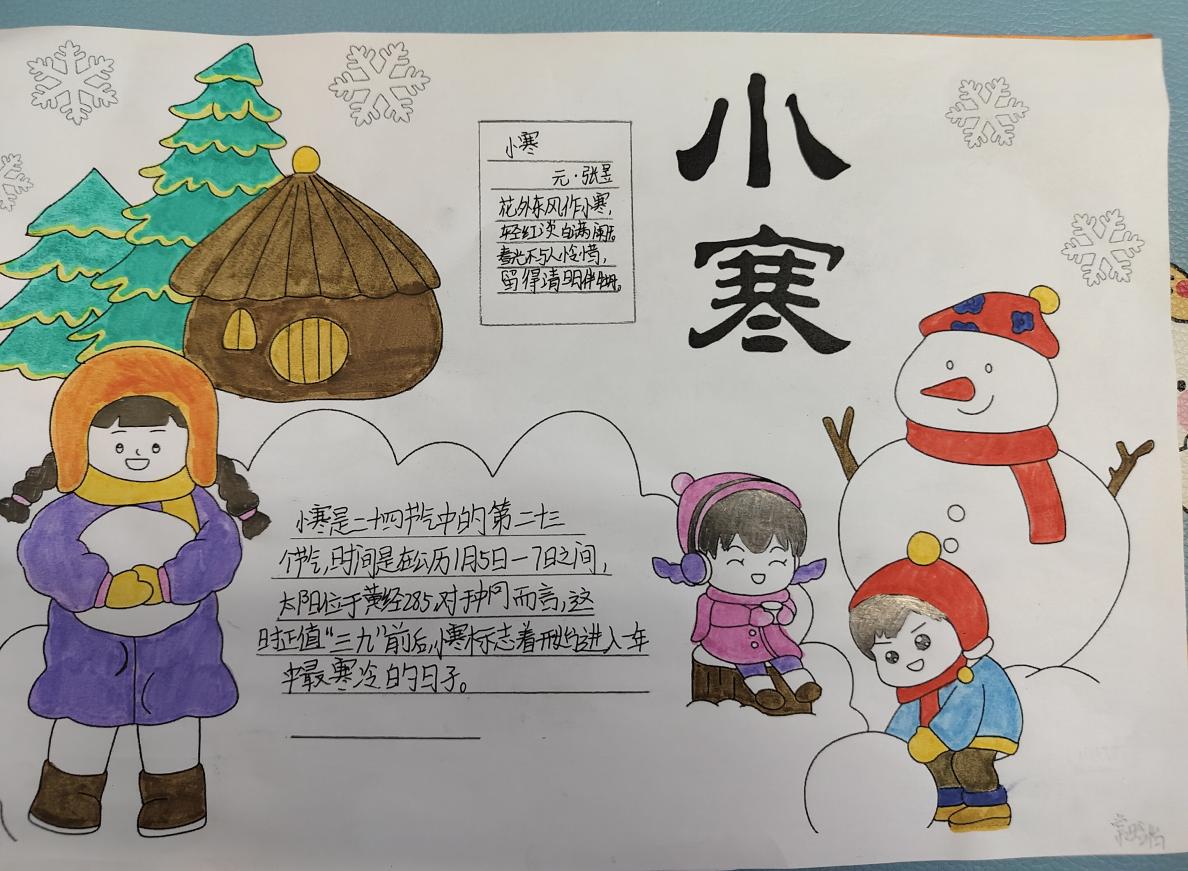 小
寒
小寒
元·张昱
花外东风作小寒,
轻红淡白满阑干。
春光不与人怜惜,
留得清明伴牡丹。
小寒是二十四节气中的第二十三
个节气,时间是在公历1月5日—7日之间,
太阳位于黄经285,对于中国而言,这
时正值“三九”前后,小寒标志着开始进入一年
中最寒冷的日子。